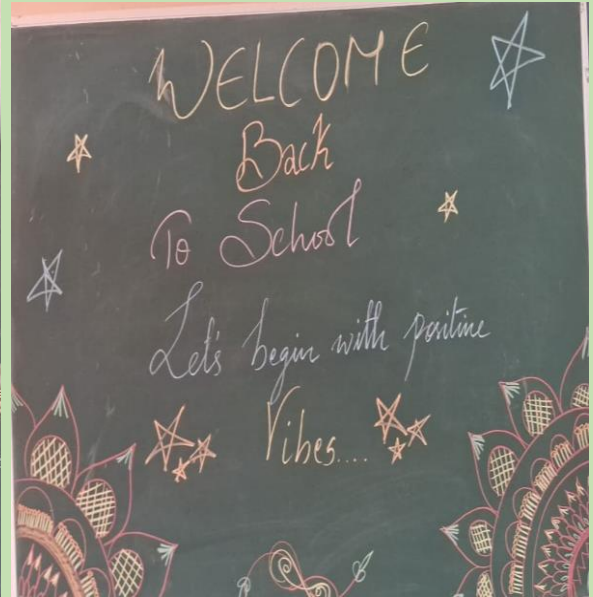 WELCOME
Back
To School
Let's begin with positive
Vibes....